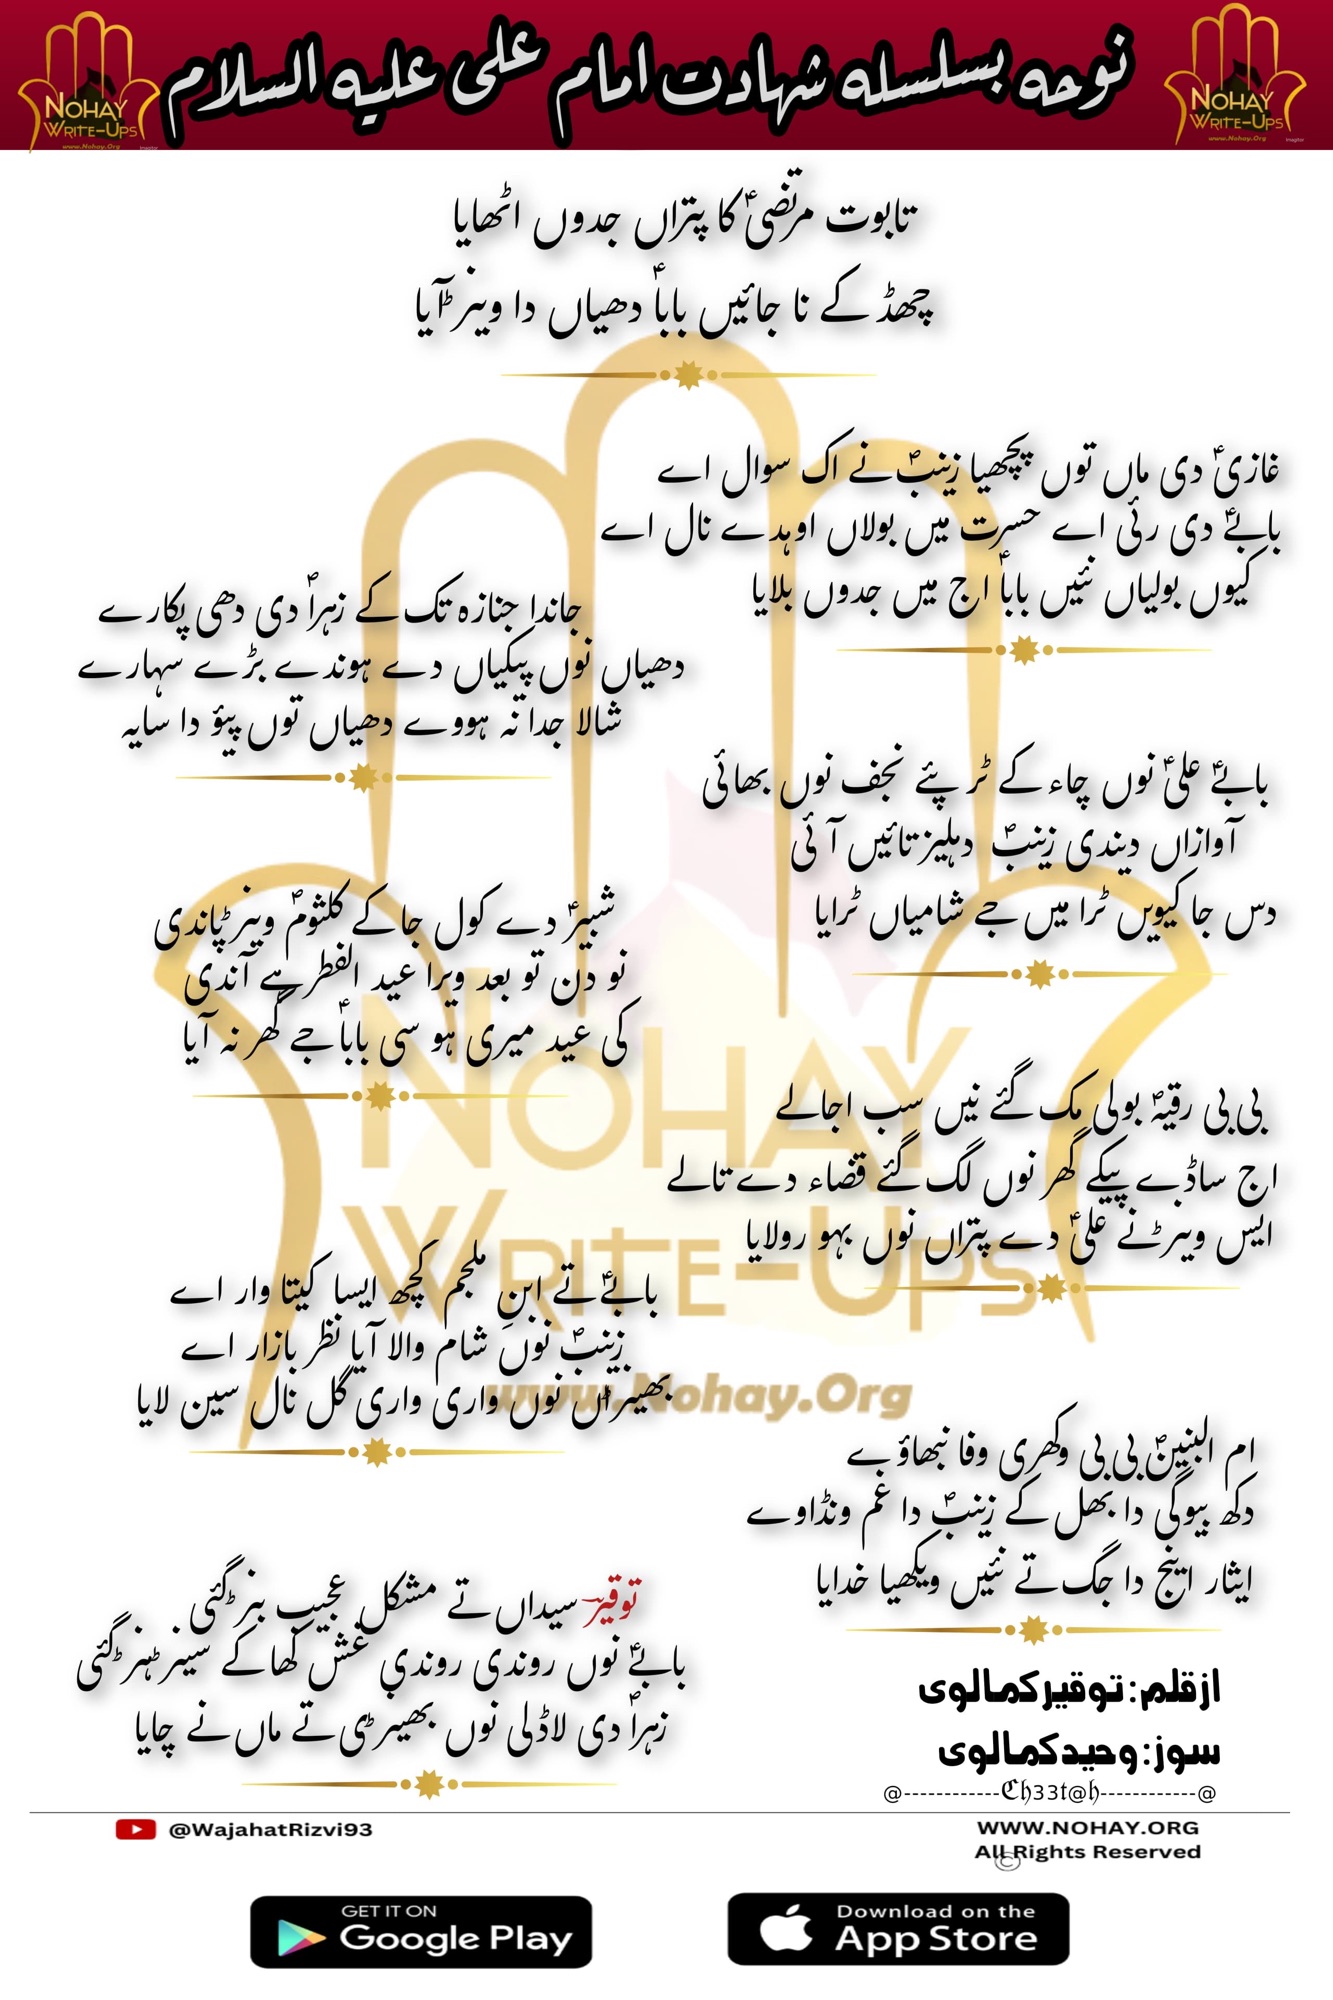 نوحہ بسلسلہ شہادت امام علی علیہ السلام
NOHAY
WRITE-UPS
www.Nohay.Org
NOHAY
WRITE-UPS
www.Nohay.Org
تابوت مرتضیؑ کا پتراں جدوں اٹھایا
چھڈ کے نا جائیں باباؑ دھیاں دا وینڑ آیا
غازیؑ دی ماں توں پچھیا زینبؑ نے اک سوال اے
بابےؑ دی رئی اے حسرت میں بولاں اوہدے نال اے
کیوں بولیاں نئیں باباؑ اج میں جدوں بلایا
جاندا جنازہ تک کے زہراؑ دی دھی پکارے
دھیاں نوں پیکیاں دے ہوندے بڑے سہارے
شالا جدا نہ ہووے دھیاں توں پیؤ دا سایہ
بابےؑ علیؑ نوں چاء کے ٹر پئے نجف نوں بھائی
آوازاں دیندی زینبؑ دہلیز تائیں آئی
دس جا کیویں ٹرا میں جے شامیاں ٹرایا
شبیرؑ دے کول جا کے کلثومؑ وینڑ پاندی
نو دن تو بعد ویرا عید الفطر ہے آندی
کی عید میری ہو سی باباؑ جے گھر نہ آیا
بی بی رقیہؑ بولی مک گئے نیں سب اجالے
اج ساڈے پیکے گھر نوں لگ گئے قضاء دے تالے
ایس ویہڑے نے علیؑ دے پتراں نوں بہو رولایا
بابےؑ تے ابنِ ملجم کچھ ایسا کیتا وار اے
زینبؑ نوں شام والا آیا نظر بازار اے
بھینڑاں نوں واری واری گل نال سین لایا
ام البنینؑ بی بی وکھری وفا نبھاؤے
دکھ بیوگی دا بھل کے زینبؑ دا غم ونڈاوے
ایثار اینج دا جگ تے نئیں ویکھیا خدایا
توقیر سیداں تے مشکل عجیب بنڑ گئی
بابےؑ نوں روندی روندی غش کھا کے سینڑ ہنڑ گئی
زہراؑ دی لاڈلی نوں بھینڑی تے ماں نے چایا
ازقلم: توقیر کمالوی
سوز: وحید کمالوی
@------------ℭ𝔥33𝔱@𝔥------------@
NOHAY
WRITE-UPS
www.Nohay.Org
@WajahatRizvi93
WWW.NOHAY.ORG
All Rights Reserved
©
GET IT ON
Google Play
Download on the
App Store